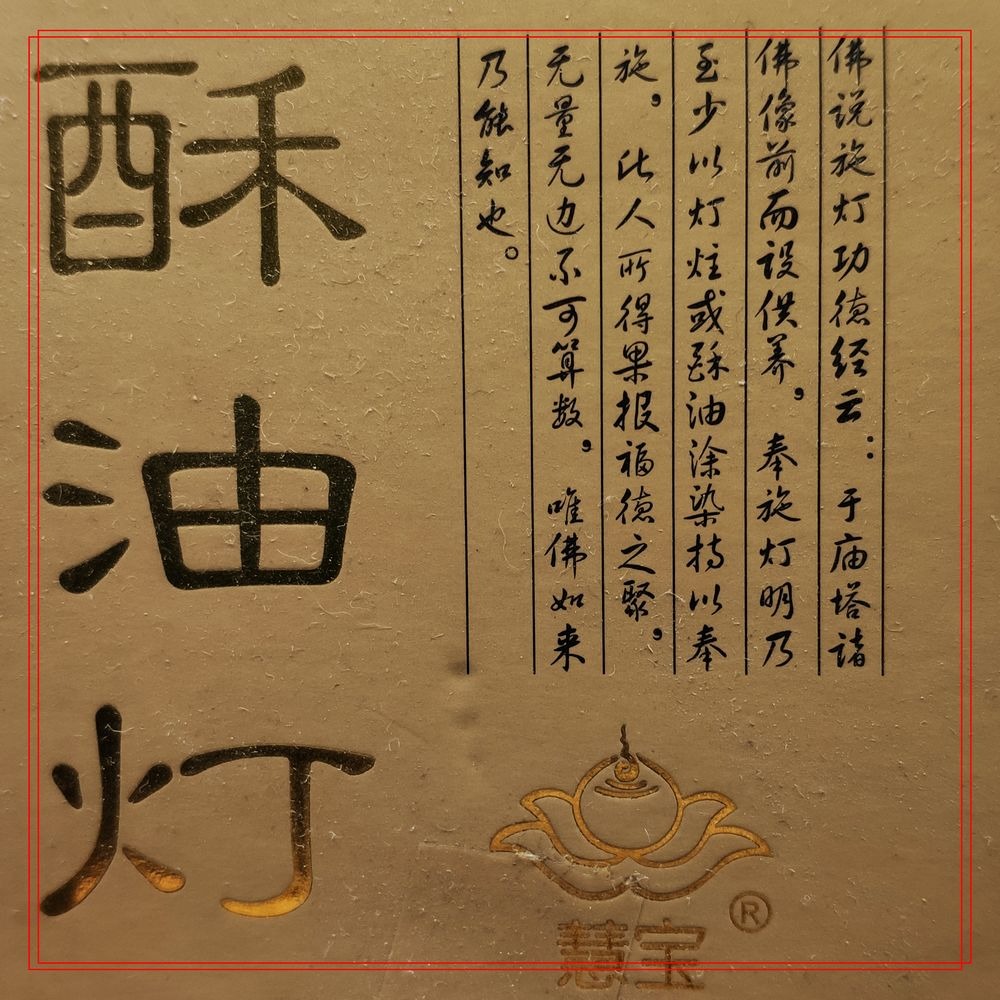 佛说施灯功德经云：于庙塔诸
佛像前而设供养，奉施灯明乃
至少以灯炷或酥油涂染持以奉
施，此人所得果报福德之聚，
无量无边不可算数，唯佛如来
乃能知也。
酥油灯
慧宝®